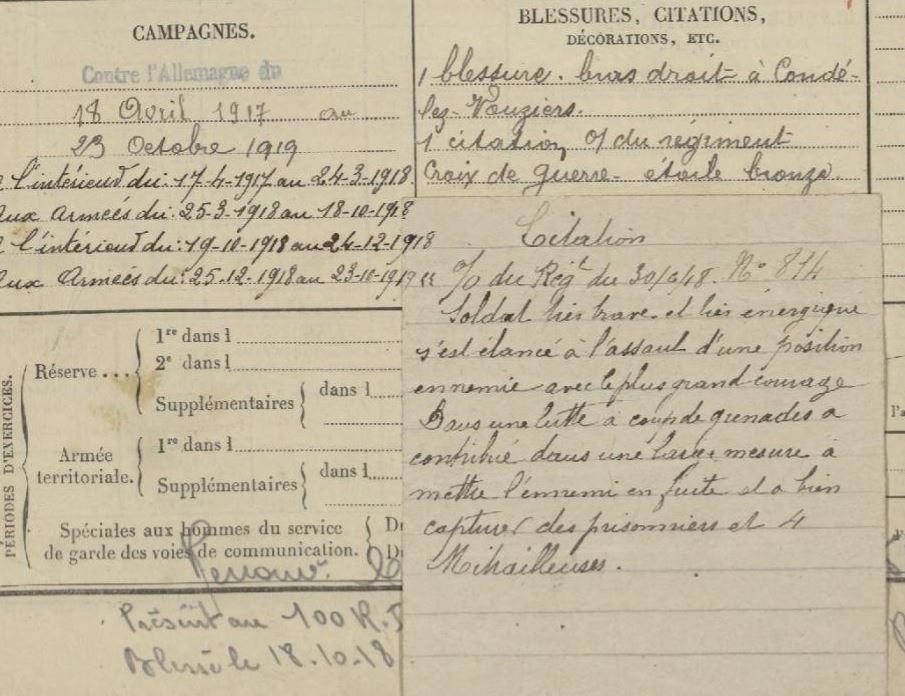 CAMPAGNES.
Contre l'Allemagne du
18 Avril 1917 au
23 Octobre 1919
l'intérieur du: 17-4-1917 au 24-3-1918
aux Armées du: 25-3-1918 au 18-10-1918
l'intérieur du: 19-10-1918 au 24-12-1918
aux Armées du: 25-12-1918 au 23-10-1919
BLESSURES, CITATIONS,
DÉCORATIONS, ETC.
1 blessure. bras droit à Condé-
lez-Vouziers.
1 citation O/ du régiment
Croix de guerre - étoile bronze
Citation
O/O du Régt du 30/6/18. No 814
Soldat très brave et très énergique
s'est élancé à l'assaut d'une position
ennemie avec le plus grand courage
Dans une lutte à coup de grenades a
contribué dans une large mesure à
mettre l'ennemi en fuite et a bien
capturer des prisonniers et 4
Mitrailleuses.
PÉRIODES D'EXERCICES.
Réserve...
1re dans l
2e dans l
Supplémentaires
dans l
Armée
territoriale.
1re dans l
Supplémentaires
dans l
Spéciales aux hommes du service
de garde des voies de communication.
D
D
Présent au 100 R.I
Blessé le 18.10.18